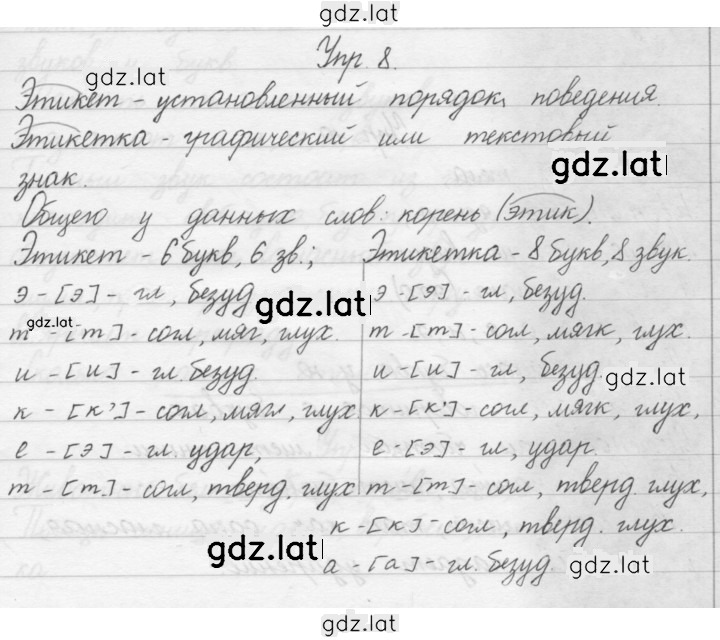 gdz.lat
Упр. 8.
gdz.lat
Этикет - установленный порядок поведения.
Этикетка - графический или текстовый
gdz.lat
знак.
Общего у данных слов: корень (этик).
Этикет - 6 букв, 6 зв.; Этикетка - 8 букв, 8 звук.
э - [э] - гл, безуд. gdz.lat э - [э] - гл, безуд.
gdz.lat
т - [т] - согл, мяг, глух. т - [т] - согл, мягк, глух.
и - [и] - гл. безуд. и - [и] - гл, безуд. gdz.lat
к - [к'] - согл, мягл, глух к - [к'] - согл, мягк, глух,
е - [э] - гл, удар, е - [э] - гл, удар.
т - [т] - согл, тверд. глух т - [т] - согл, тверд. глух,
к - [к] - согл, тверд. глух.
gdz.lat а - [а] - гл. безуд. gdz.lat
gdz.lat